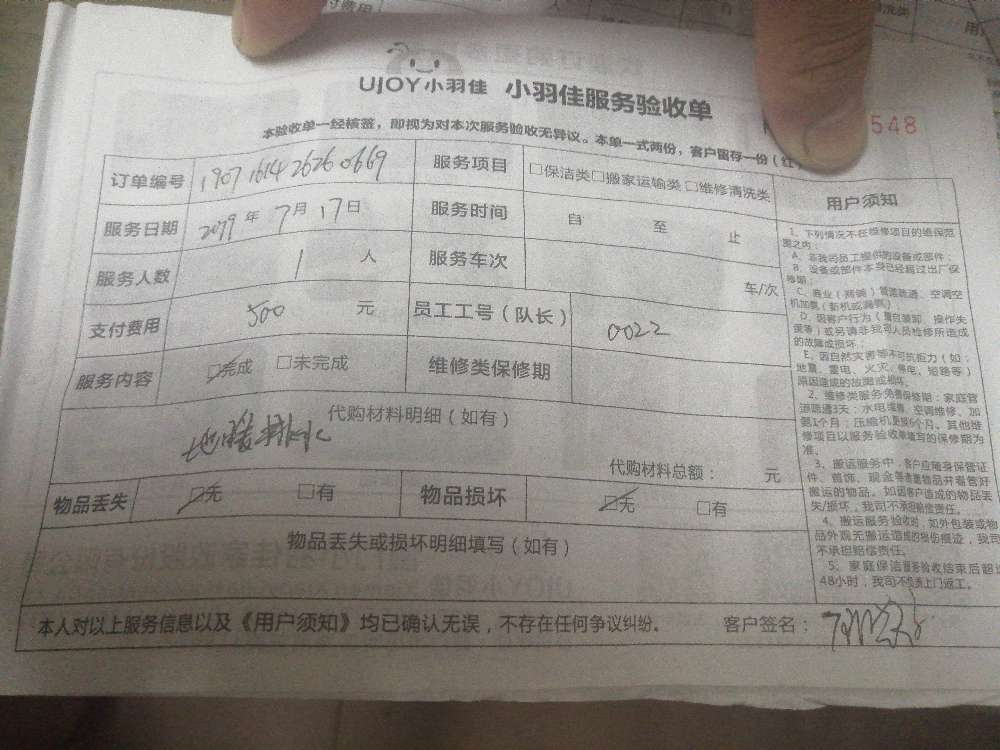 UJOY小羽佳 小羽佳服务验收单
548
本验收单一经核签，即视为对本次服务验收无异议。本单一式两份，客户留存一份（红
订单编号 1907161426260669 服务项目 □保洁类□搬家运输类 □维修清洗类
服务日期 年 7月17日 服务时间 自 至 止
服务人数 1 人 服务车次 车/次
支付费用 500 元 员工工号（队长） 0022
服务内容 ☑完成 □未完成 维修类保修期
代购材料明细（如有）
地暖排水
代购材料总额： 元
物品丢失 ☑无 □有 物品损坏 ☑无 □有
物品丢失或损坏明细填写（如有）
本人对以上服务信息以及《用户须知》均已确认无误，不存在任何争议纠纷。 客户签名：
用户须知
1、下列情况不在维修项目的维保范
围之内：
A、非我司员工提供的设备或部件；
B、设备或部件本身已经超过出厂保
修期；
C、商业（商铺）管道疏通、空调空
机加氟（新机或漏氟）
D、因客户行为（擅自装卸、操作失
误等）或另请非我司人员检修所造成
的故障或损坏；
E、因自然灾害等不可抗拒力（如：
地震、雷电、火灾、停电、短路等）
原因造成的故障或损坏。
2、维修类服务免费保修期：家庭管
道疏通3天；水电维修、空调维修、加
氟1个月；压缩机更换6个月。其他维
修项目以服务验收单填写的保修期为
准。
3、搬运服务中，客户应随身保管证
件、首饰、现金等贵重物品并看管好
搬运的物品。如因客户造成的物品丢
失/损坏，我司不承担赔偿责任。
4、搬运服务验收时，如外包装或物
品外观无搬运造成的损伤痕迹，我司
不承担赔偿责任。
5、家庭保洁服务验收结束后超过
48小时，我司不负责上门返工。